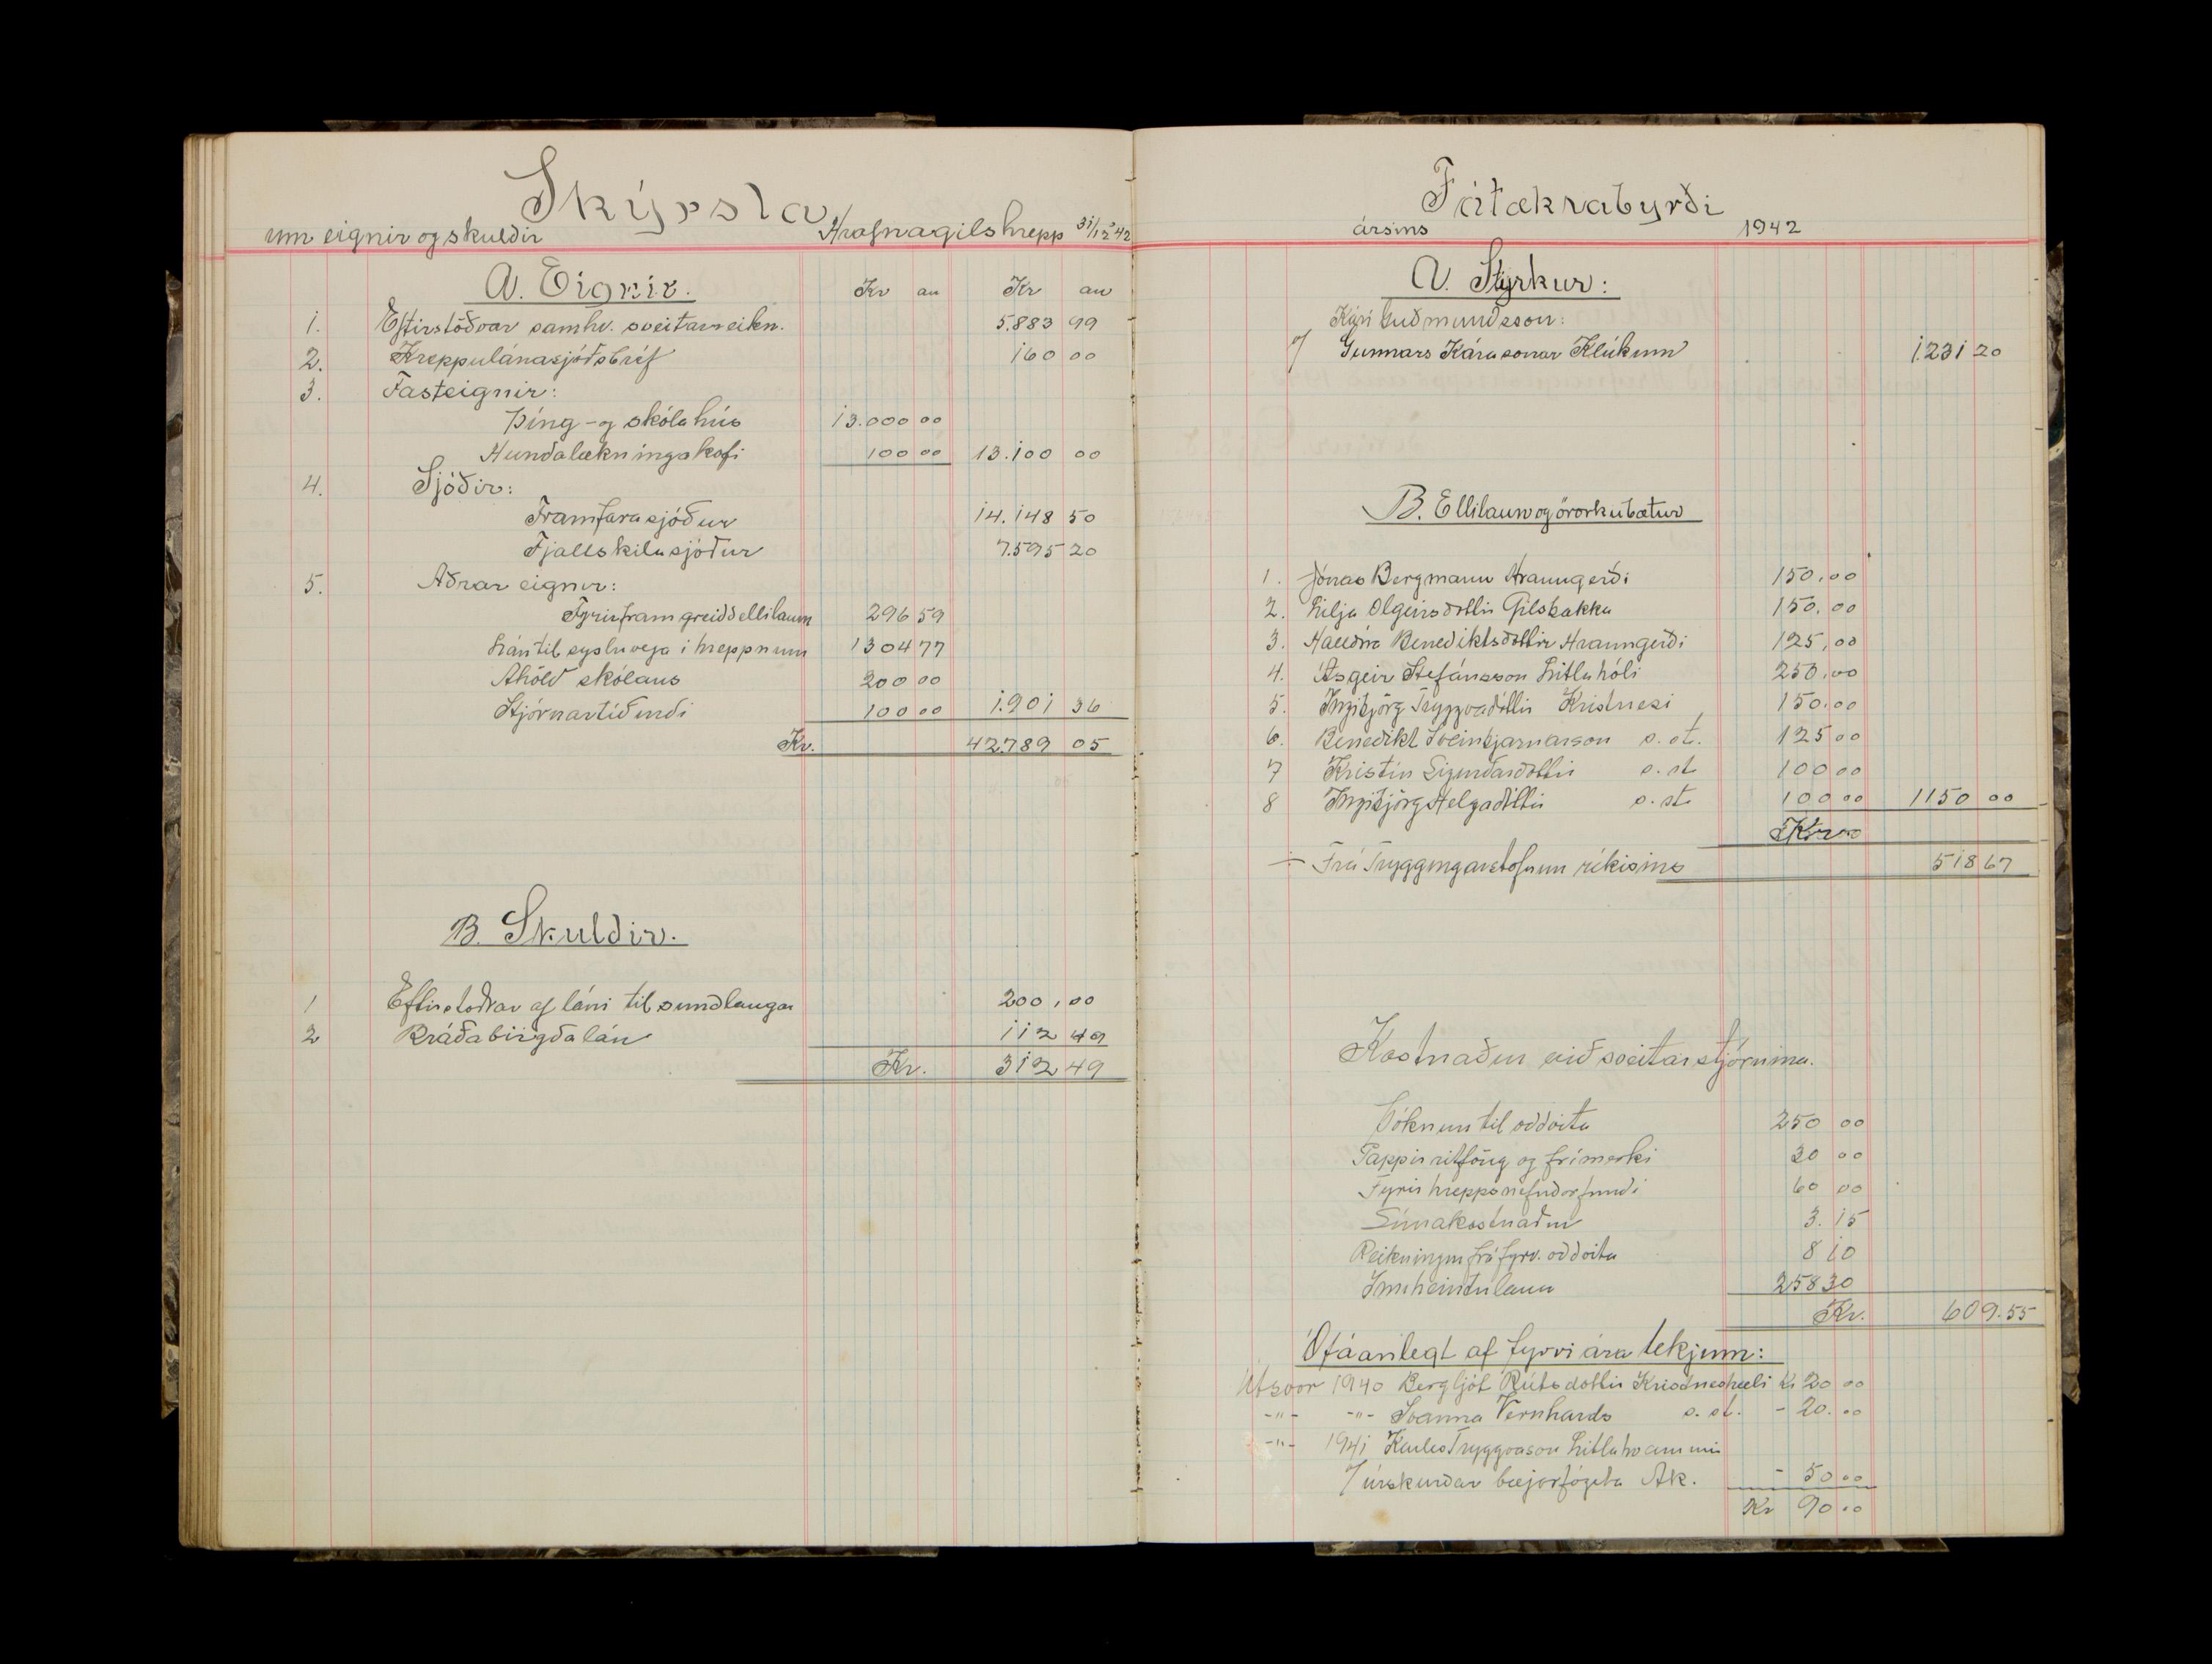 Skýrsla
um eignir og skuldir Hrafnagilshrepp 31/12 42
A. Eignir. Kr au Kr au
1. Eftirstöðvar samhv. sveitarreikn. 5.883 99
2. Kreppulánasjóðsbréf 160 00
3. Fasteignir:
Þing-og skólahús 13.000 00
Hundalækningakofi 100 00 13.100 00
4. Sjóðir:
Framfarasjóður 14.148 50
Fjallskilasjóður 7.595 20
5. Aðrar eignir:
Fyrirframgreidd ellilaun 296 59
Lán til sysluvega i hreppnum 1304 77
Áhöld skólans 200 00
Stjórnartíðindi 100 00 1.901 36
Kr. 42.789 05
B. Skuldir.
1 Eftirstoðvar af láni til sundlaugar 200,00
2 Bráðabirgðalán 112 49
Kr. 312 49
Fátækrabyrði
ársins 1942
A. Styrkur:
Kári Guðmundsson:
v/ Gunnars Kárasonar Klúkum 1.231 20
B. Ellilaun og örorkubætur
1. Jónas Bergmann Hraungerði 150,00
2. Lilja Olgeirsdottir Gilsbakka 150,00
3. Halldóra Benediktsdottir Hraungerði 125,00
4. Ásgeir Stefánsson Litlahóli 250,00
5. Ingibjörg Tryggvadóttir Kristnesi 150.00
6. Benedikt Sveinbjarnarson s. st. 125 00
7 Kristín Sigurðardóttir s. st. 100 00
8 Ingibjörg Helgadóttir s. st. 100 00 1150 00
Kr
÷ Frá Tryggingarstofnun ríkisins 518 67
Kostnaður við sveitarstjórnina.
Þóknun til oddvita 250 00
Pappir ritföng og frímerki 30 00
Fyrir hreppsnefndarfundi 60 00
Símakostnaður 3.15
Reikningur frá fyrv. oddvita 8 10
Innheimtulaun 258 30
Kr. 609.55
Ófáanlegt af fyrri ára tekjum:
Útsvar 1940 Bergljót Rútsdottir Kristneshæli Kr 20 00
-"- -"- Svanna Vernhards s. st. - 20.00
-"- 1941 Karles Tryggvason Litlahvammi
v/ úrskurdar bæjarfógeta Ak. - 50 00
Kr 90 00